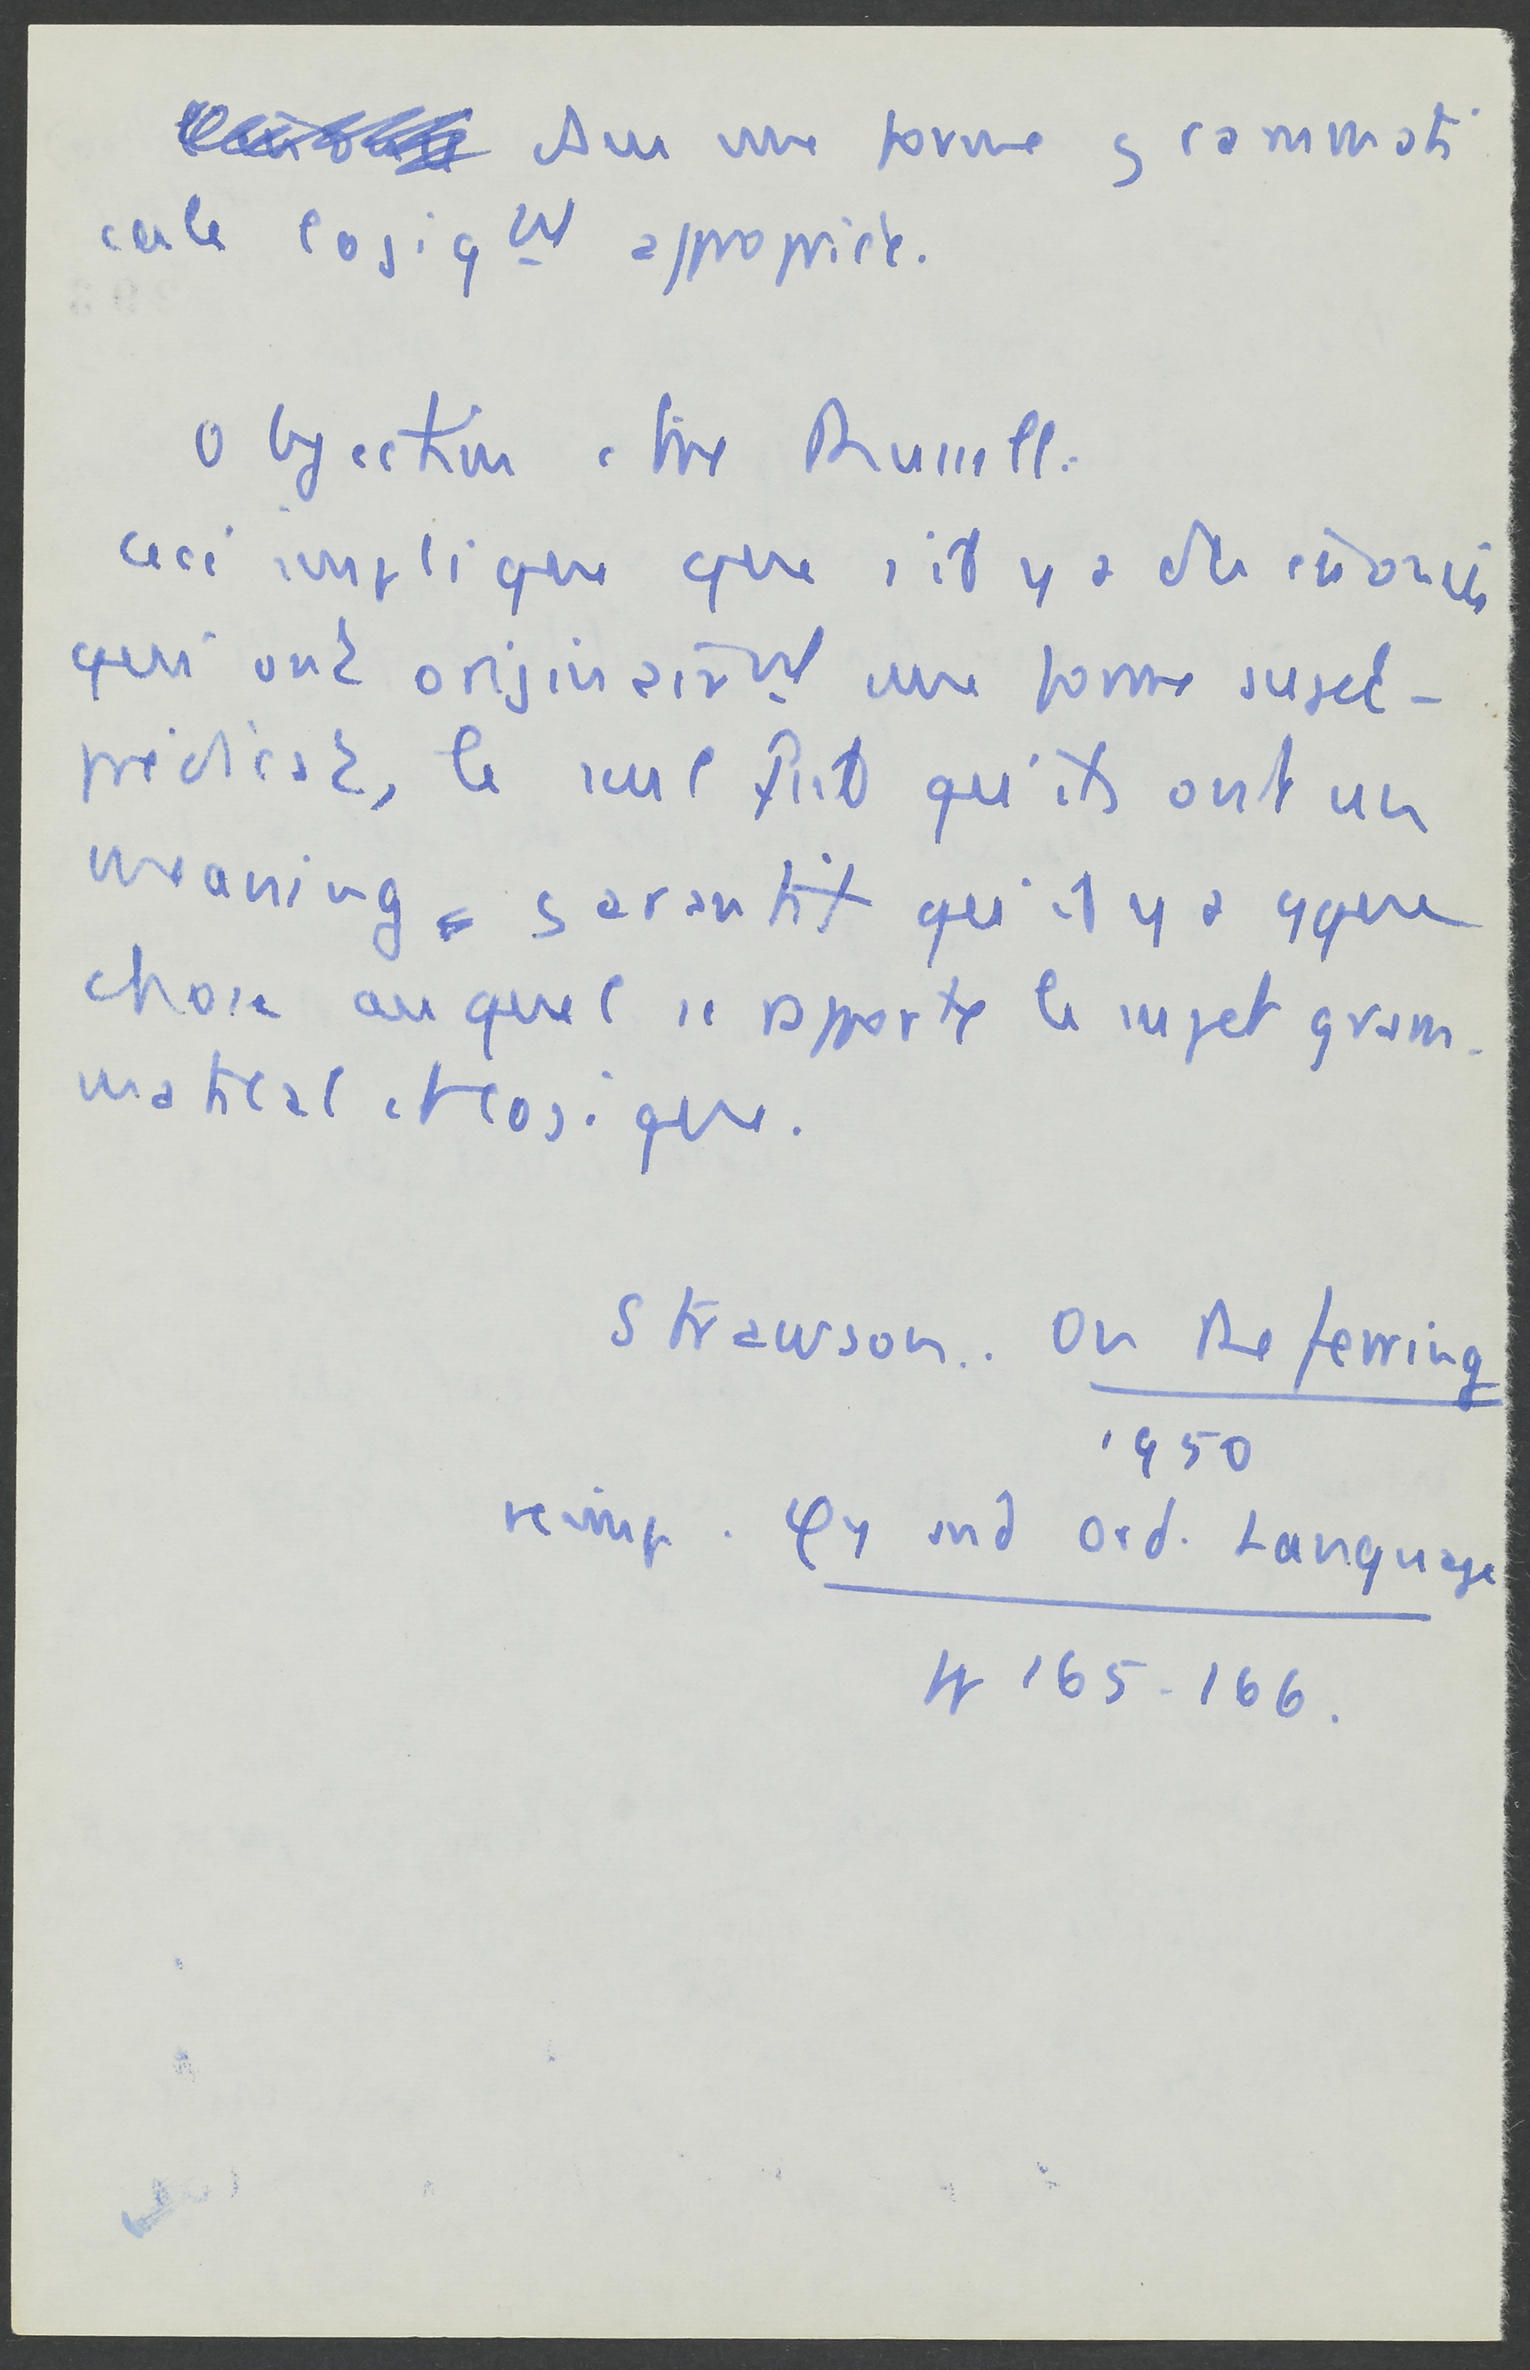 dans une forme grammati
cale logiqt appropriée.
Objection contre Russell.
Ceci implique que s'il y a des énoncés
qui ont originairt une forme sujet-
prédicat, le seul fait qu'ils ont un
meaning garantit qu'il y a qque
chose auquel se rapporte le sujet gram-
matical et logique.
Strawson.. On Referring
1950
reimp. φy and Ord. Language
pp 165-166.